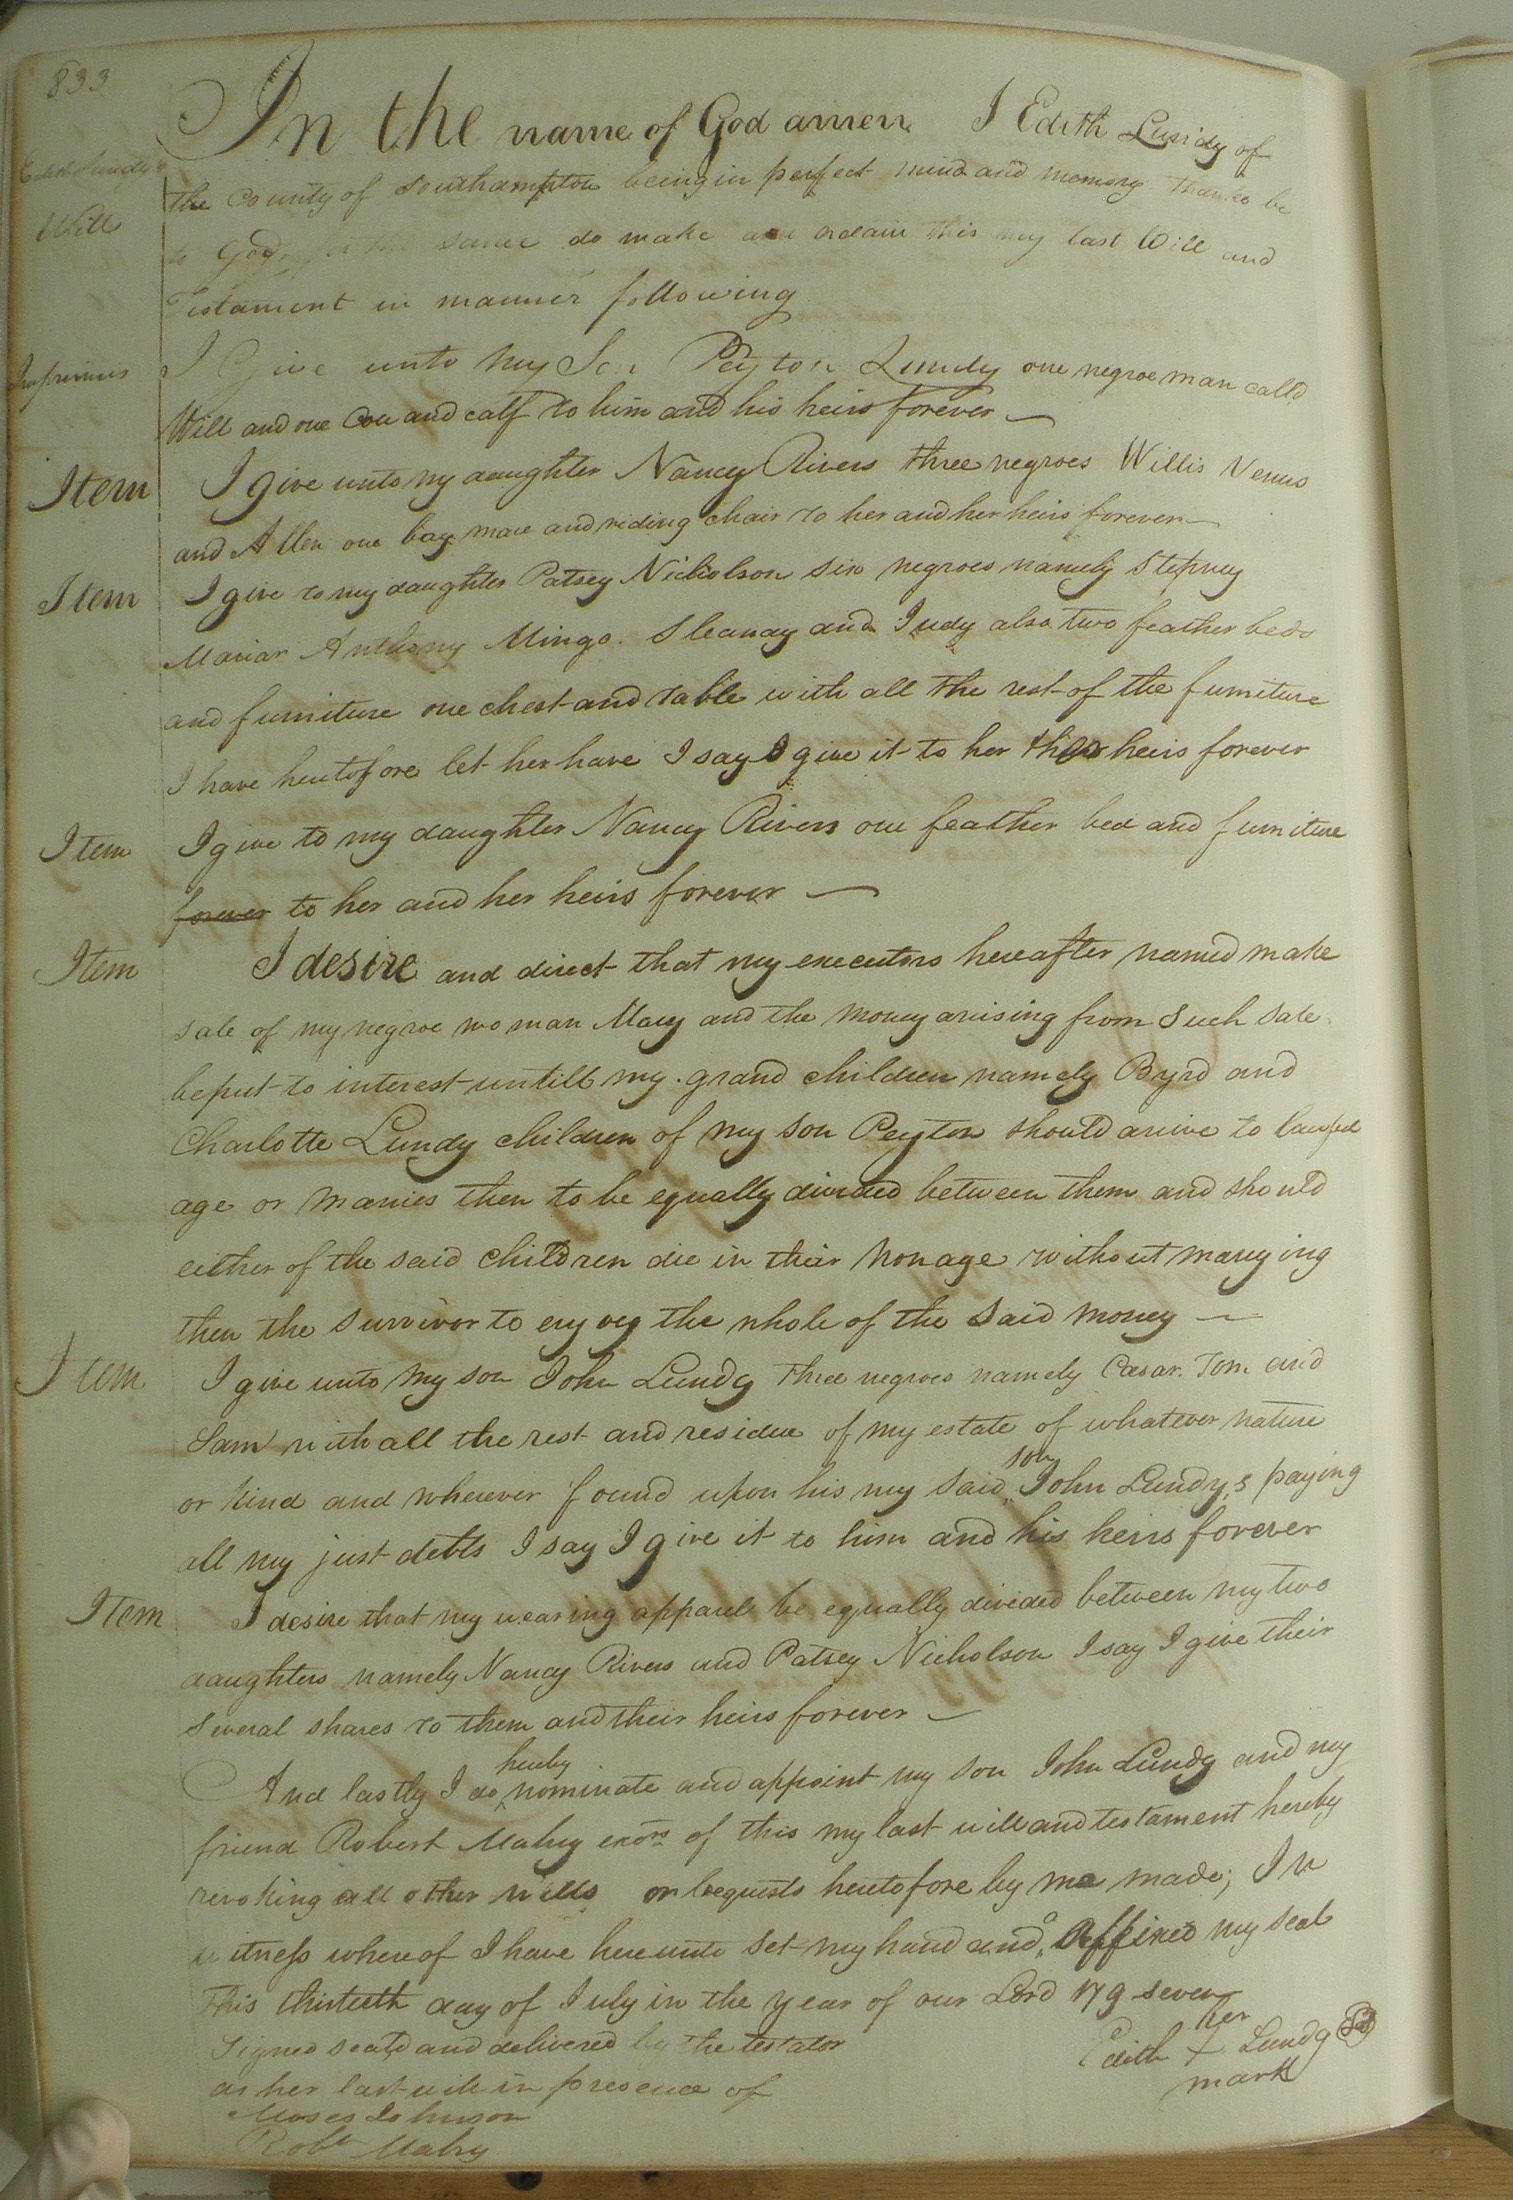 833
In the name of God amen I Edith Lundy of
Edith Lundy's
the County of Southampton being in perfect mind and memory thanks be
Will
to God for the same do make and ordain this my last Will and
Testament in manner following
Imprimis I Give unto my Son Peyton Lundy one negroe man calld
Will and one Cow and calf to him and his heirs forever —
Item I give unto my daughter Nancy Rivers three negroes Willis Venus
and Allen one bay mare and riding chair to her and her heirs forever —
Item I give to my daughter Patsey Nicholson six negroes namely Stepney
Mariar Anthony Mingo. Sleanay and Judy also two feather beds
and furniture one chest and table with all the rest of the furniture
I have heretofore let her have I say I give it to her & her heirs forever
Item I give to my daughter Nancy Rivers one feather bed and furniture
forever to her and her heirs forever —
Item I desire and direct that my executors hereafter named make
sale of my negroe woman Mary and the money arising from such sale
be put to interest untill my grand children namely Byrd and
Charlotte Lundy children of my son Peyton should arive to lawful
age or maries then to be equally divided between them and should
either of the said children die in their nonage without marrying
then the survivor to enjoy the whole of the said money —
Item I give unto my son John Lundy three negroes namely Caesar. Tom and
Sam with all the rest and residue of my estate of whatever nature
or kind and wherever found upon his my said son John Lundy,s paying
all my just debts I say I give it to him and his heirs forever
Item I desire that my wearing apparel be equally divided between my two
daughters namely Nancy Rivers and Patsey Nicholson I say I give their
several shares to them and their heirs forever —
And lastly I do hereby nominate and appoint my son John Lundy and my
friend Robert Mabry exors of this my last will and testament hereby
revoking all other wills or bequests heretofore by me made; In
witness whereof I have hereunto set my hand and affixed my seal
this thirteeth day of July in the year of our Lord 179 seven
Signed seald and delivered by the testator
as her last will in presence of
her
Edith + Lundy
mark
Moses Johnson
Robt Mabry